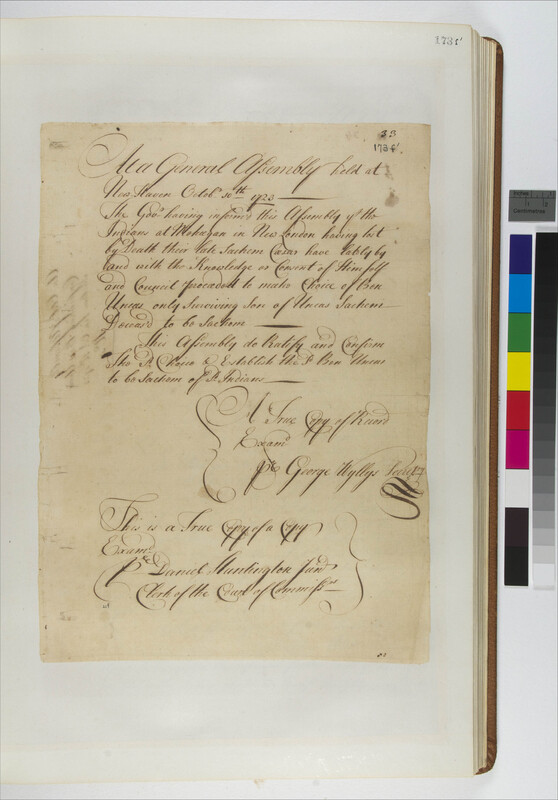 1735
33
1734
At a General Assembly held at
New Haven Octobr 10th 1723
The Govr having inform'd this Assembly yt the
Indians at Mohegan in New London having lost
by Death their late Sachem Cæsar have lately by
and with the Knowledge or Consent of Himself
and Council proceeded to make Choice of Ben
Uncas only surviving Son of Uncas Sachem
Deceas'd to be Sachem
This Assembly do Ratify and Confirm
the sd Choice & Establish the sd Ben Uncas
to be Sachem of sd Indians
A True Copy of Record
Examd
pr George Wyllys Secretry
This is a True Copy of a Copy
Examd
pr Daniel Huntington Junr
Clerk of the Court of Commissrs